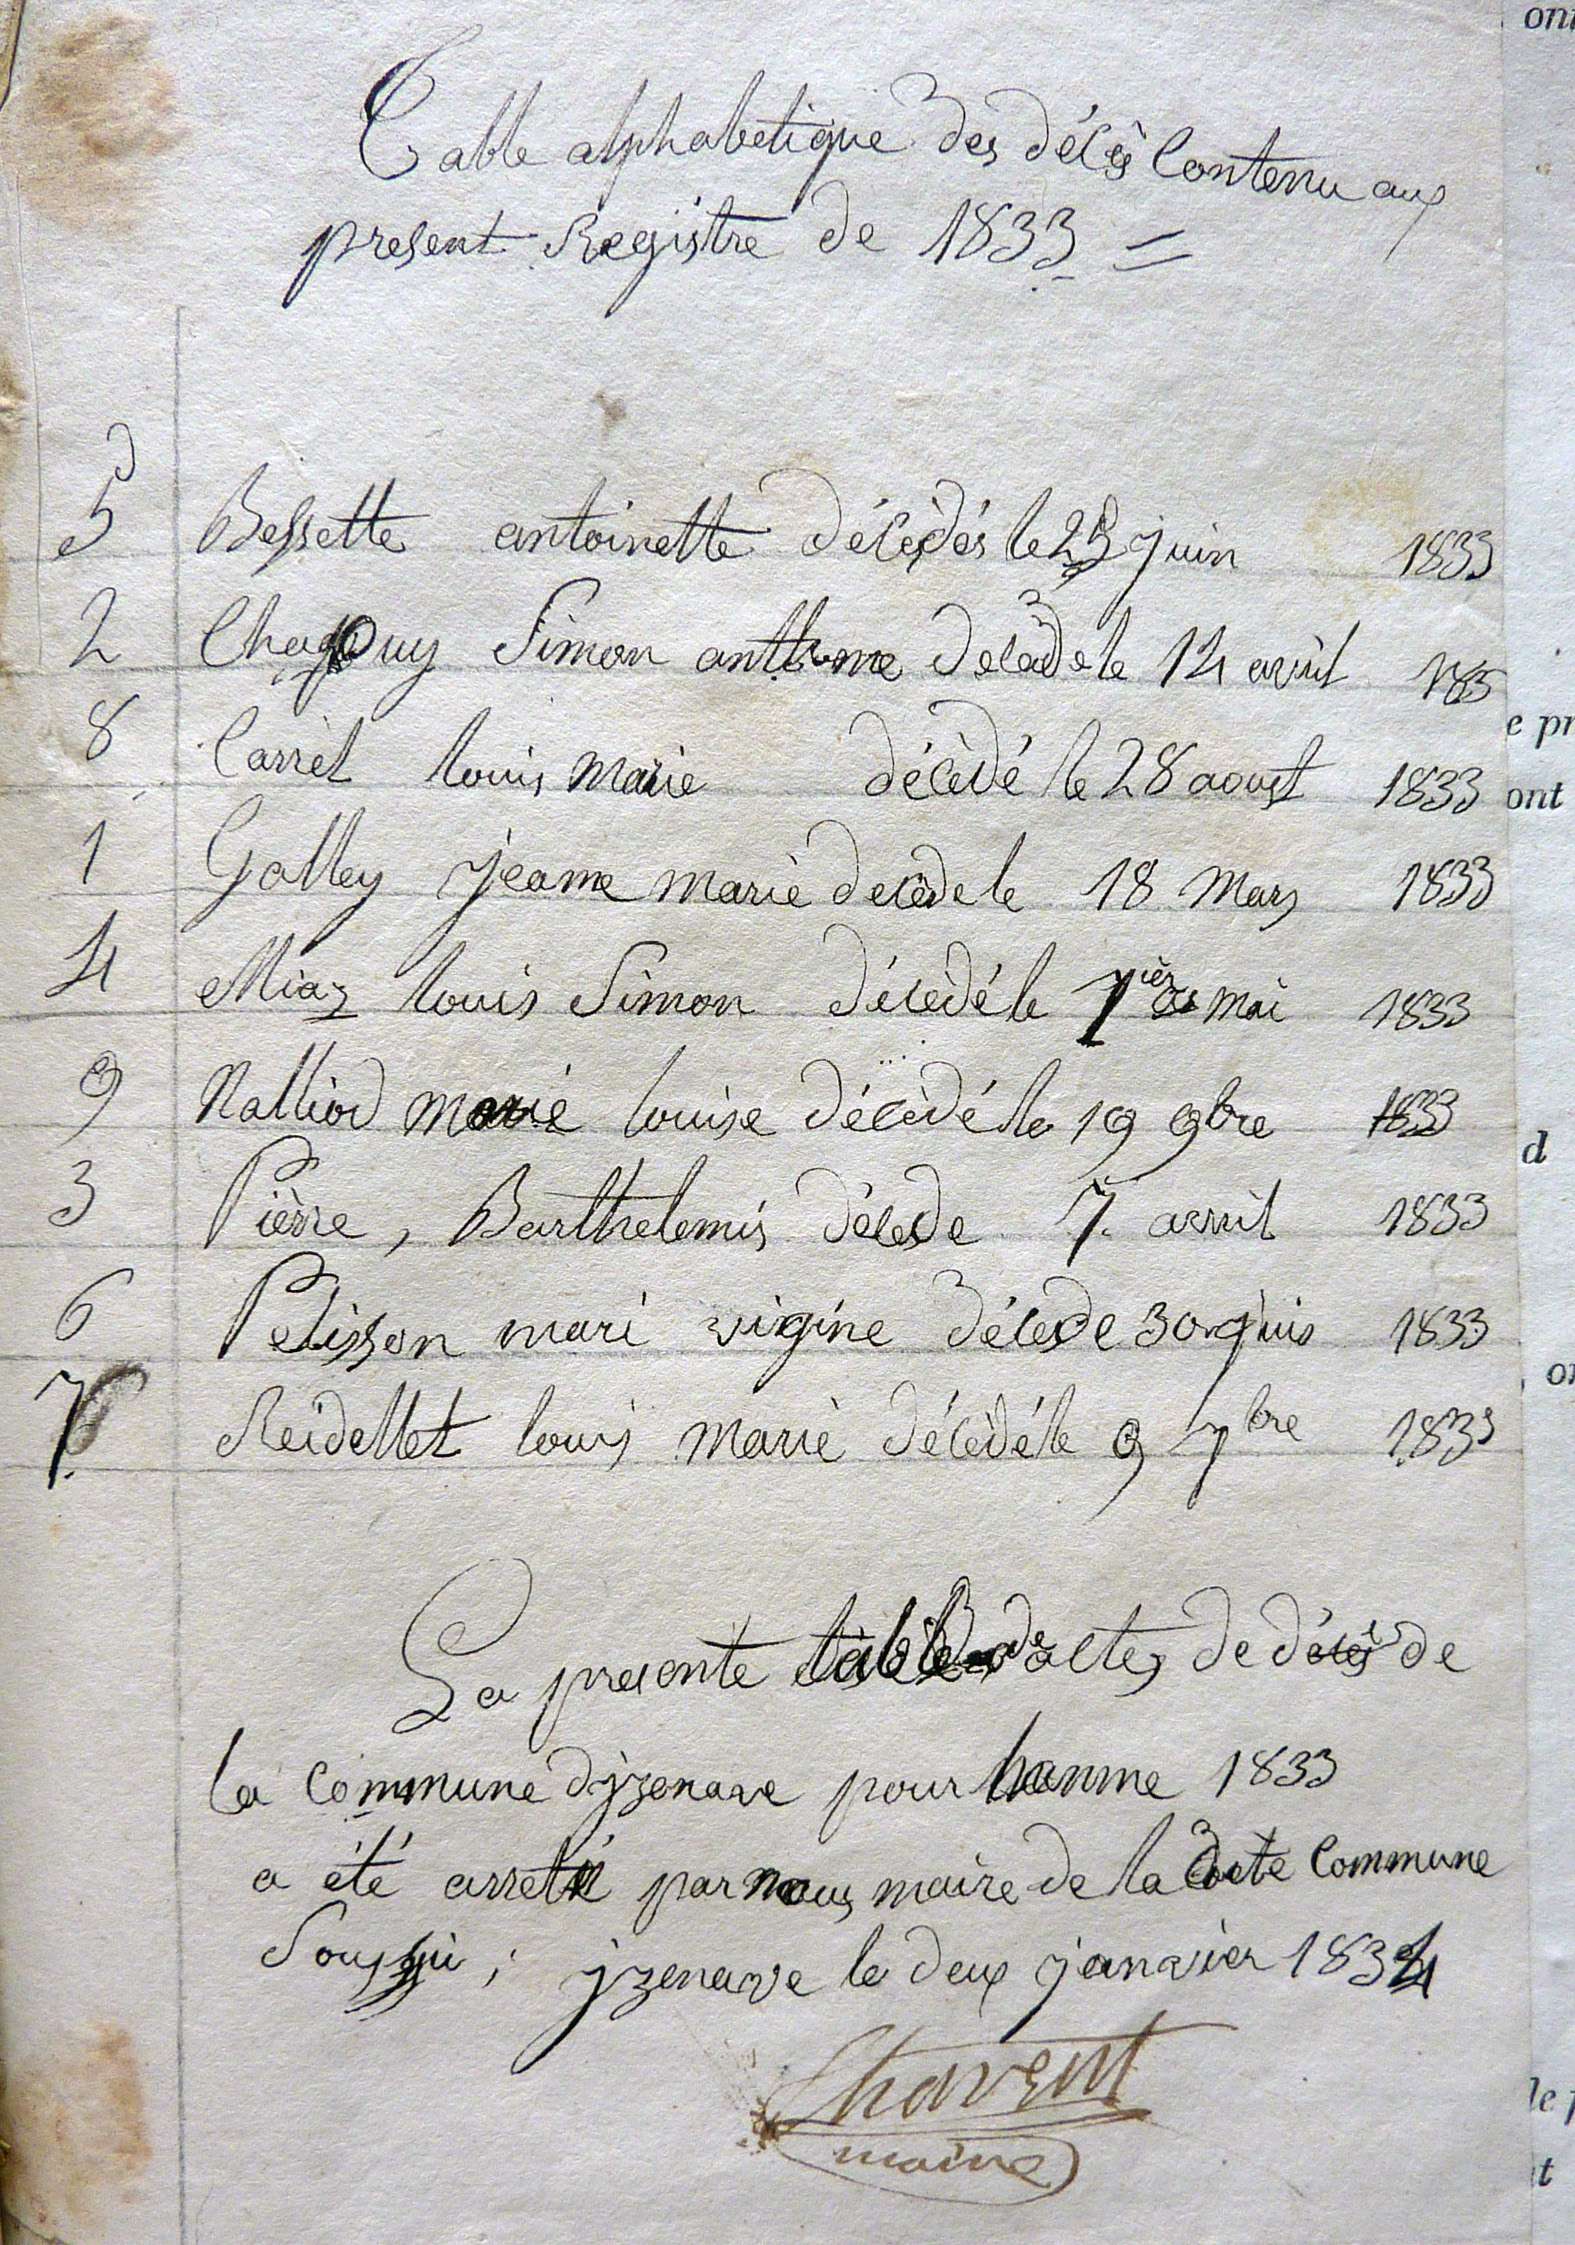 Table alphabetique des décès Contenu aux
present Registre de 1833 =
5 Bessette antoinette décèdés le 25 juin 1833
2 Chapuy Simon anthme decède le 14 avril 183
8 Carrel louis Marie décèdé le 28 aoust 1833
1 Galley jeanne marie decède le 18 Mars 1833
4 Miaz louis Simon décèdé le 1ier mai 1833
9 Nalliod marie louise décèdé le 19 9bre 1833
3 Pièrre, Barthelemis décede 7 avril 1833
6 Pelisson mari virgine décede 30 juis 1833
7 Reidellet louis marie décèdé le 9 7bre 1833
La presente table de actes de décès de
la Commune d'jzenave pour lanme 1833
a été arreté par nous maire de la dite Commune
Soussi ; jzenave le deux janvier 1834
Chavent
maire
ont
e pr
ont
d
on
le p
t